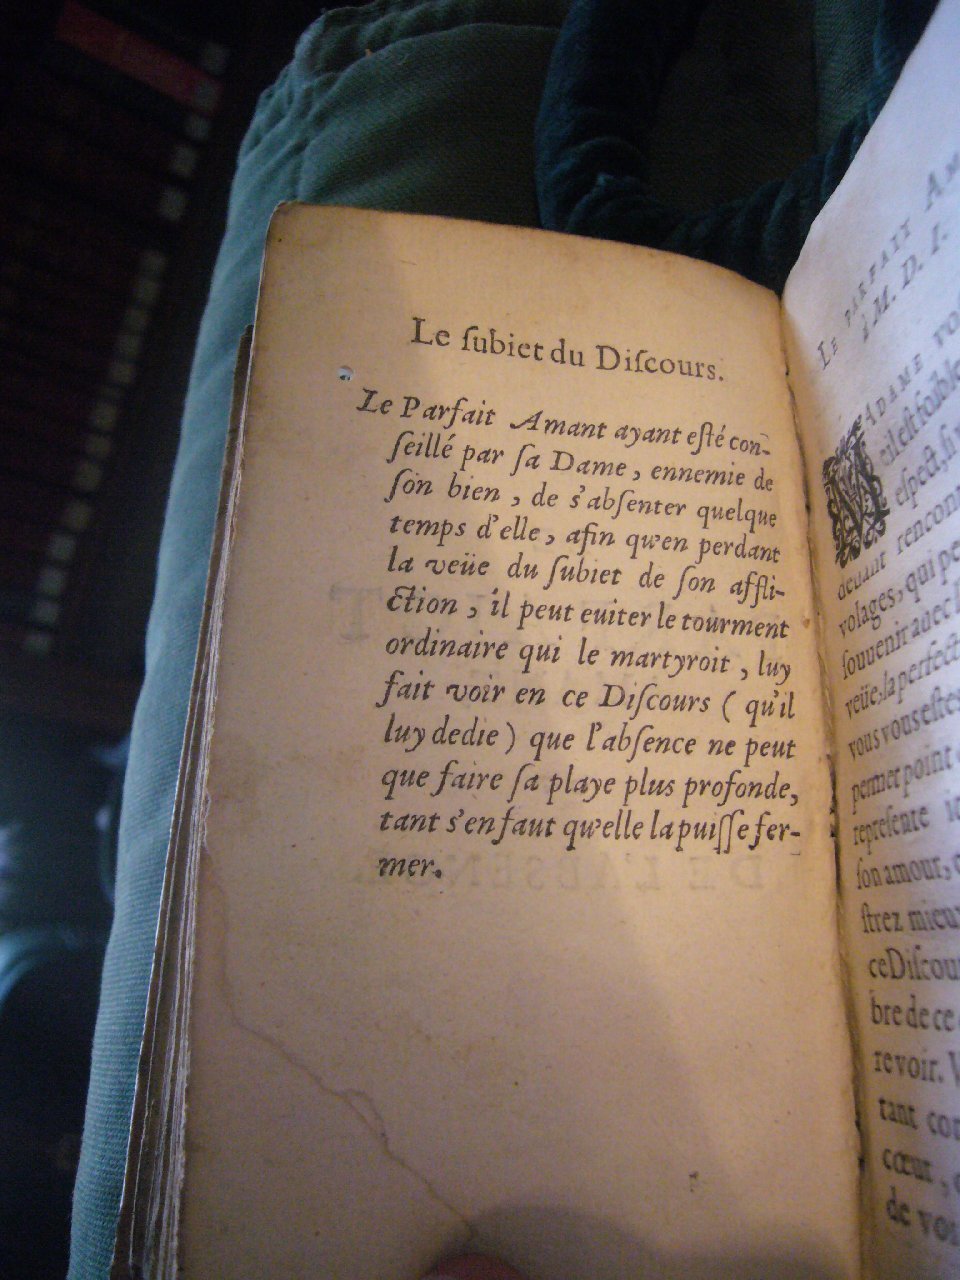 Le ſubiet du Diſcours.
Le Parfait Amant ayant eſté con-
ſeillé par ſa Dame, ennemie de
ſon bien, de s'abſenter quelque
temps d'elle, afin qu'en perdant
la veüe du ſubiet de ſon affli-
ction, il peut euiter le tourment
ordinaire qui le martyroit, luy
fait voir en ce Diſcours (qu'il
luy dedie) que l'abſence ne peut
que faire ſa playe plus profonde,
tant s'en faut qu'elle la puiſſe fer-
mer.
LE PARFAIT
à M. D. I.
MADAME
eſpect,
deuant
volages, qui
ſouuenir auec
veüe, la
vous vous eſtes
permet point
repreſente
ſon amour,
ſtrez mieux
ce Diſcou
bre de ce
reuoir.
tant
cœur,
de